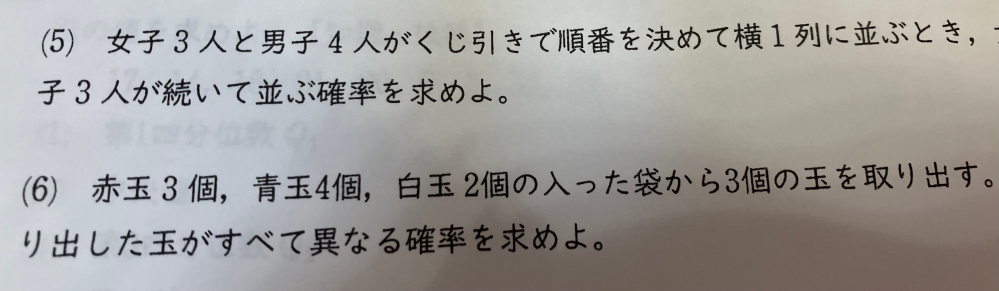 (5) 女子3人と男子4人がくじ引きで順番を決めて横1列に並ぶとき,
子3人が続いて並ぶ確率を求めよ。
(6) 赤玉3個, 青玉4個, 白玉2個の入った袋から3個の玉を取り出す。
り出した玉がすべて異なる確率を求めよ。